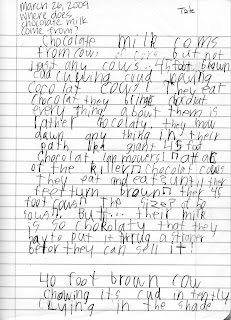 March 26, 2009
Where does
chocolate milk
come from?
Tate
Chocolate milk coms
from cows of cors, but not
just any cows... 45 foot brown
cud chuwing coud
Cocolat cows! They eat
chocolat they chocolat
every thing about them is
rather chocolaty. they mow
down any thing in their
path like giant 45 foot
Chocolat, lan mowers! attac
of the killer chocolat cows
they eat and eat, until their
feet turn brown ther 45
foot cows! The size? of 10
cows!. But... their milk
is so chokolaty that they
have to put it thrug a straner
befor they can sell it!
40 foot brown cow
Chowing its cud in tently
Lying in the shade